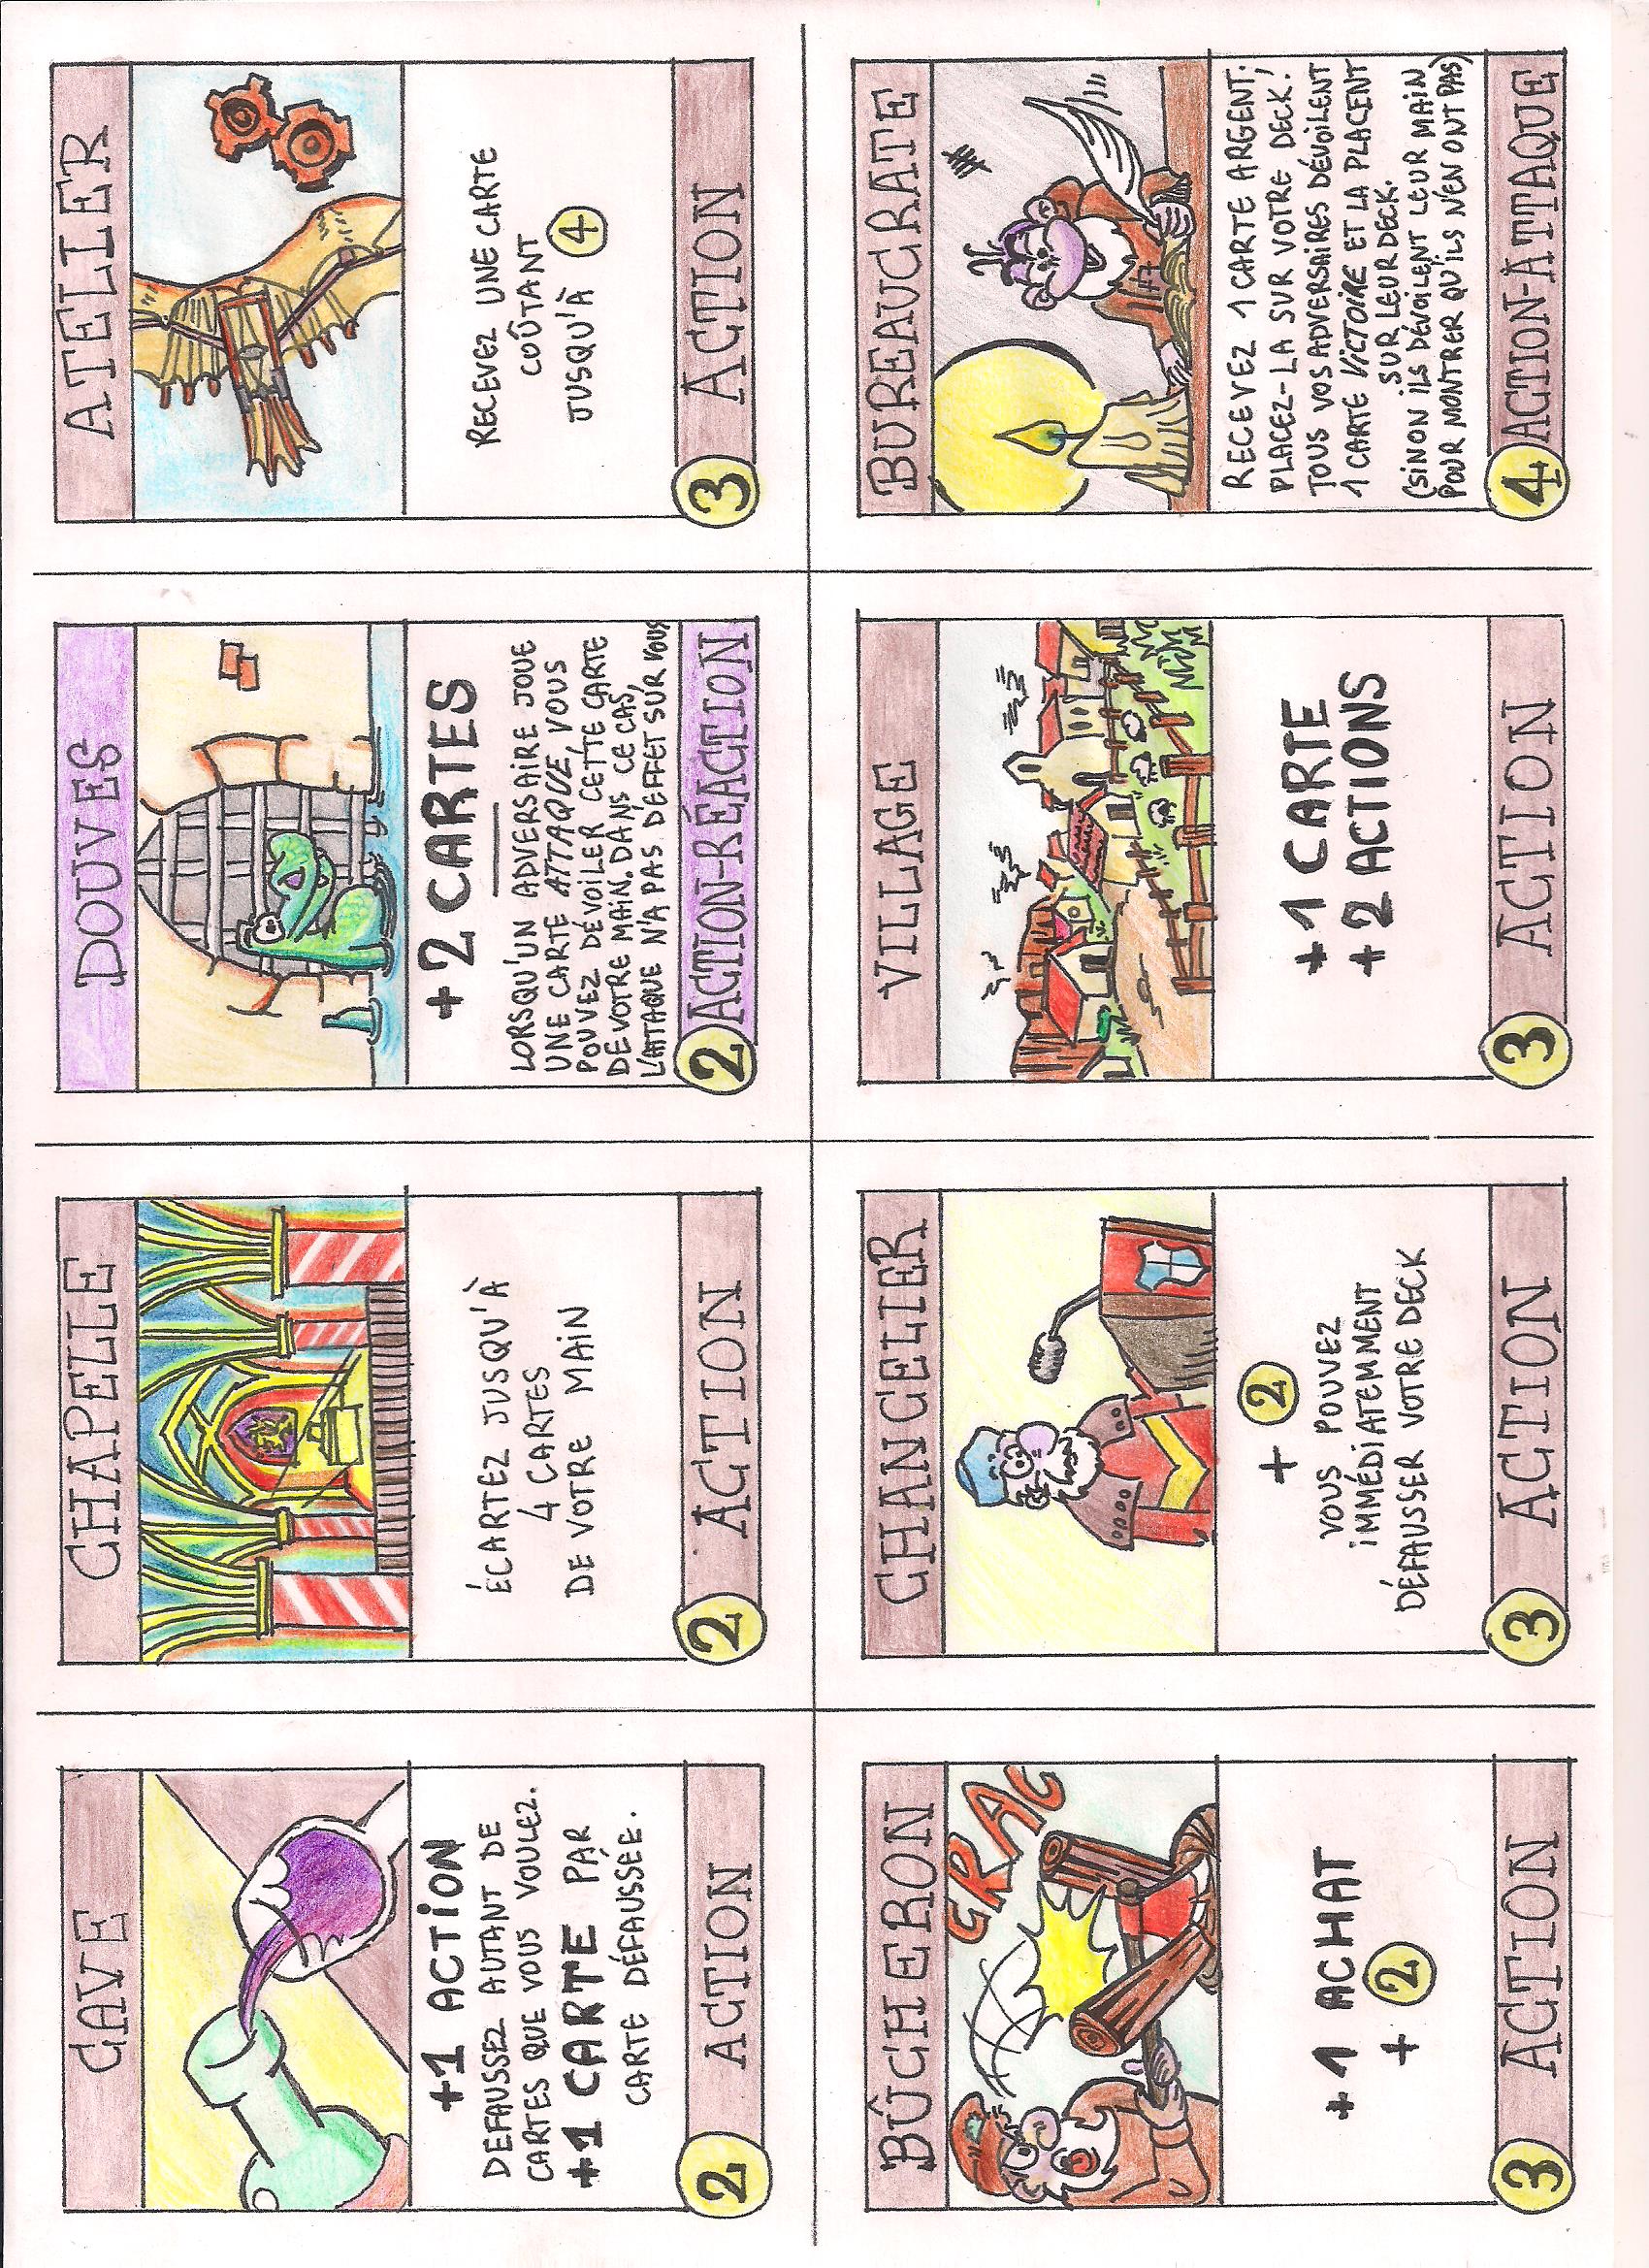 CAVE
+1 ACTiON
DEFAUSSEZ AUTANT DE
CARTES QUE VOUS VOULEZ.
+1 CARTE PAR
CARTE DÉFAUSSEE.
2
ACTION
CHAPELLE
ÉCARTEZ JUSQU'À
4 CARTES
DE VOTRE MAiN
2
ACTION
DOUVES
+2 CARTES
LORSQU'UN ADVERSAiRE JOUE
UNE CARTE ATTAQUE, VOUS
POUVEZ DÉVOiLER CETTE CARTE
DE VOTRE MAiN. DANS CE CAS,
L'ATTAQUE N'A PAS D'EFFET SUR VOUS
2
ACTION-RÉACTION
ATELIER
RECEVEZ UNE CARTE
COÛTANT
JUSQU'À 4
3
ACTION
BÛCHERON
CRAC
+1 ACHAT
+ 2
3
ACTION
CHANCELIER
+ 2
VOUS POUVEZ
iMMÉDiATEMMENT
DÉFAUSSER VOTRE DECK
3
ACTION
VILLAGE
+1 CARTE
+2 ACTIONS
3
ACTION
BUREAUCRATE
RECEVEZ 1 CARTE ARGENT;
PLACEZ-LA SUR VOTRE DECK.
TOUS VOS ADVERSAiRES DÉVOiLENT
1 CARTE ViCTOiRE ET LA PLACENT
SUR LEUR DECK.
(SiNON iLS DÉVOiLENT LEUR MAiN
POUR MONTRER QU'iLS N'EN ONT PAS)
4
ACTION-ATTAQUE